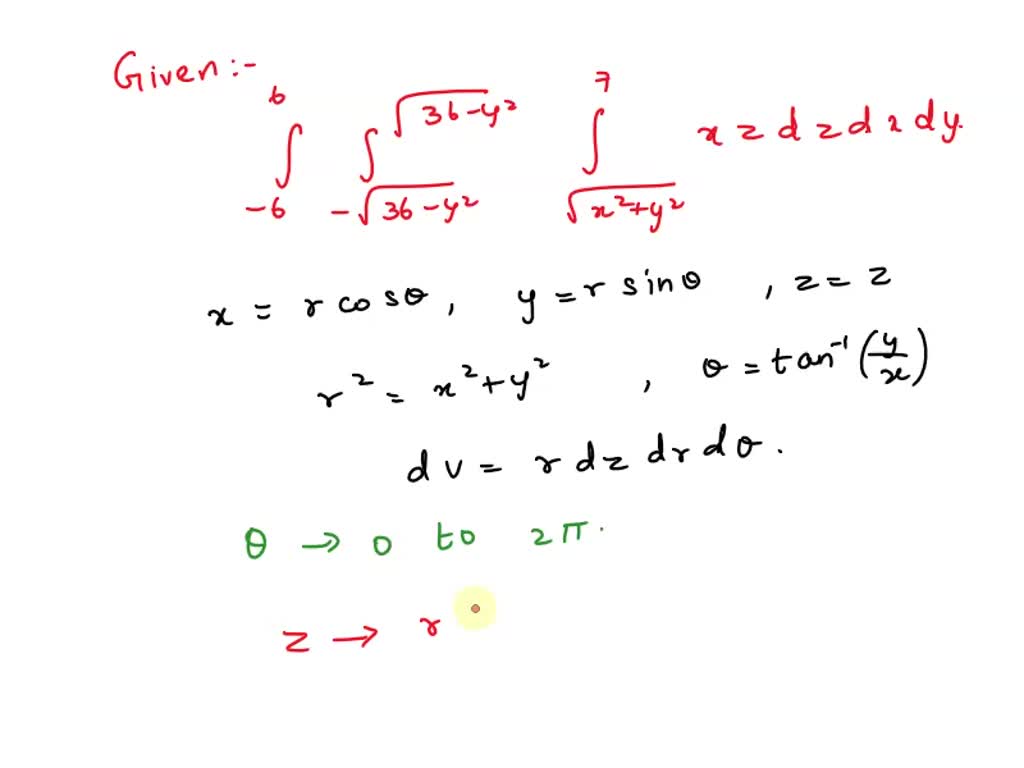 Given :-
∫_{-6}^{6} ∫_{-√(36-y²)}^{√(36-y²)} ∫_{√(x²+y²)}^{7} x z dz dx dy.
x = r cosθ, y = r sinθ , z = z
r² = x²+y² , θ = tan⁻¹(y/x)
dv = r dz dr dθ.
θ → 0 to 2π.
z → r